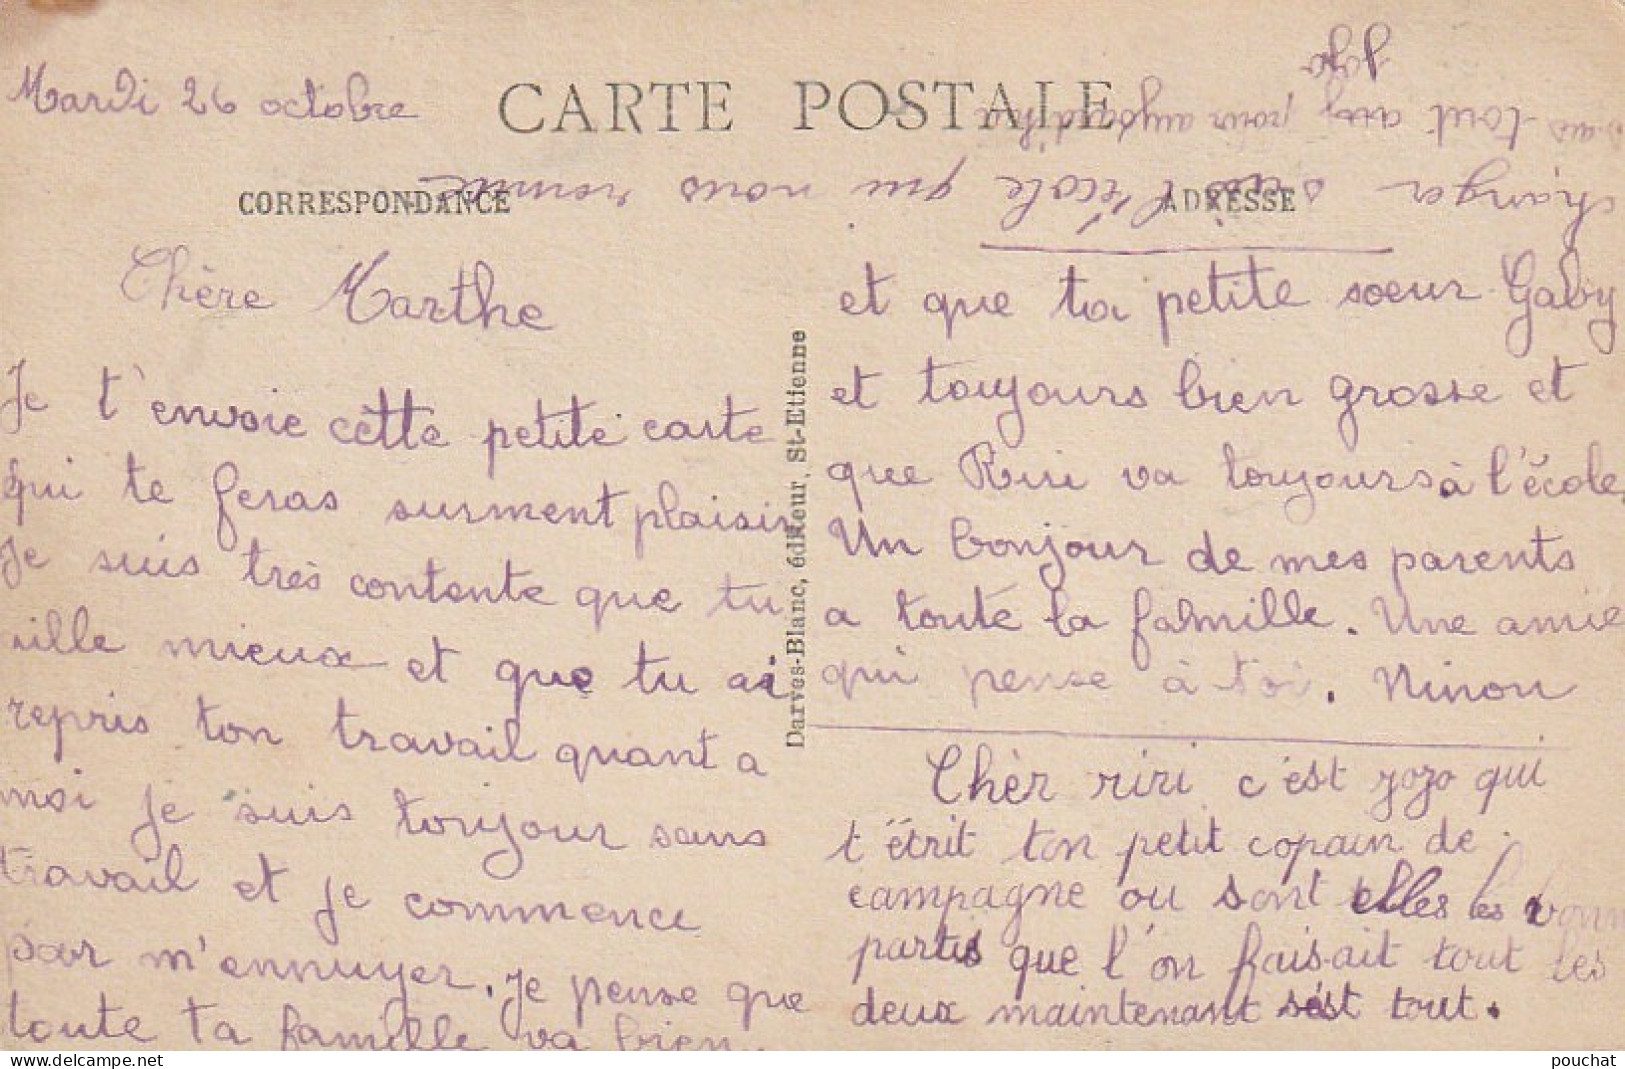 Mardi 26 octobre
CARTE POSTALE
CORRESPONDANCE
ADRESSE
Chère Marthe
Je t'envoie cette petite carte
qui te feras surment plaisir
Je suis très contente que tu
aille mieux et que tu ai
repris ton travail quant a
moi je suis toujour sans
travail et je commence
par m'ennuyer. Je pense que
toute ta famille va bien.
Darves-Blanc, éditeur, St-Etienne
et que ta petite soeur Gaby
et toujours bien grosse et
que Riri va toujours à l'école.
Un bonjour de mes parents
a toute la famille. Une amie
qui pense à toi. Ninon
Chèr riri c'est jojo qui
t'étrit ton petit copain de
campagne ou sont elles les bonn
partis que l'on faisait tout les
deux maintenant s'est tout.
changer s'est l'école qui nous
tout pour aujourd'hui
Jojo
pouchat